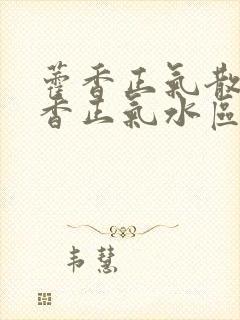 藿香正氣散
香正氣水區
韦慧